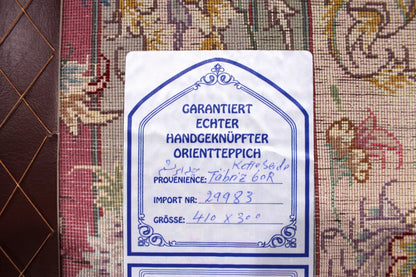 GARANTIERT
ECHTER
HANDGEKNÜPFTER
ORIENTTEPPICH
Kette Seide
PROVENIENCE: Täbriz 60R
IMPORT NR: 29983
GRÖSSE: 410 X 300